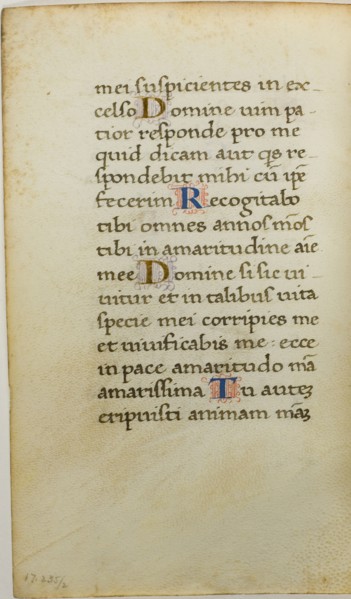 mei suspicientes in ex-
celso Domine uim pa-
tior responde pro me
quid dicam aut qs re-
spondebit mihi cū ipē
fecerim Recogitabo
tibi omnes annos mōs
tibi in amaritudine aīe
mee Domine si sic ui-
uitur et in talibus uita
specie mei corripies me
et uiuificabis me: ecce
in pace amaritudo mā
amarissima Tu auteʒ
eripuisti animam māʒ
17.235/2